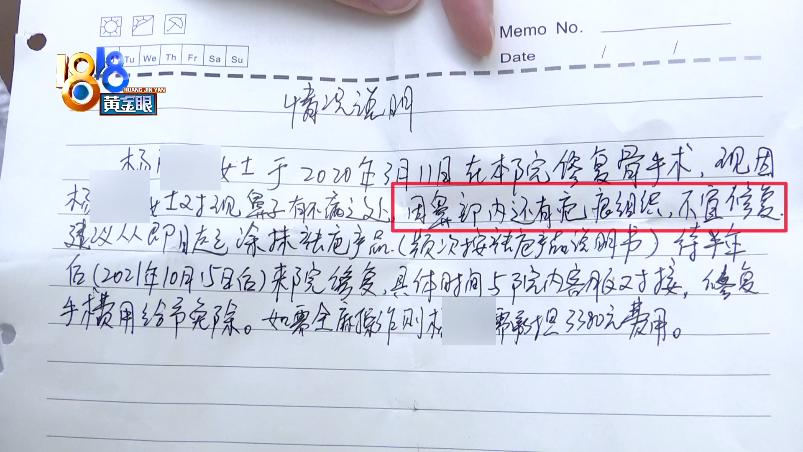 Memo No.
Tu We Th Fr Sa Su
Date / /
1818
HUANG JIN YAN
黄金眼
情况说明
杨 女士于2020年3月11日在本院修复骨手术,现因
杨 女士对现鼻子有不满之处,因鼻部内还有疤痕组织,不宜修复.
建议从即日起涂抹祛疤产品(频次按祛疤产品说明书)待半年
后(2021年10月15日后)来院修复,具体时间与院内客服对接,修复
手术费用给予免除。如需全麻操作则杨 需承担3380元费用。